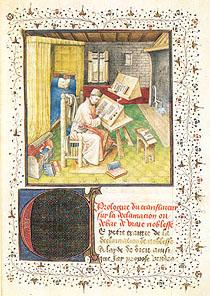 Prologue du translateur
sur la declamation ou
debat de vraie noblesse
CE petit traittie de la
declamation de noblesse
A layde de dieu
que